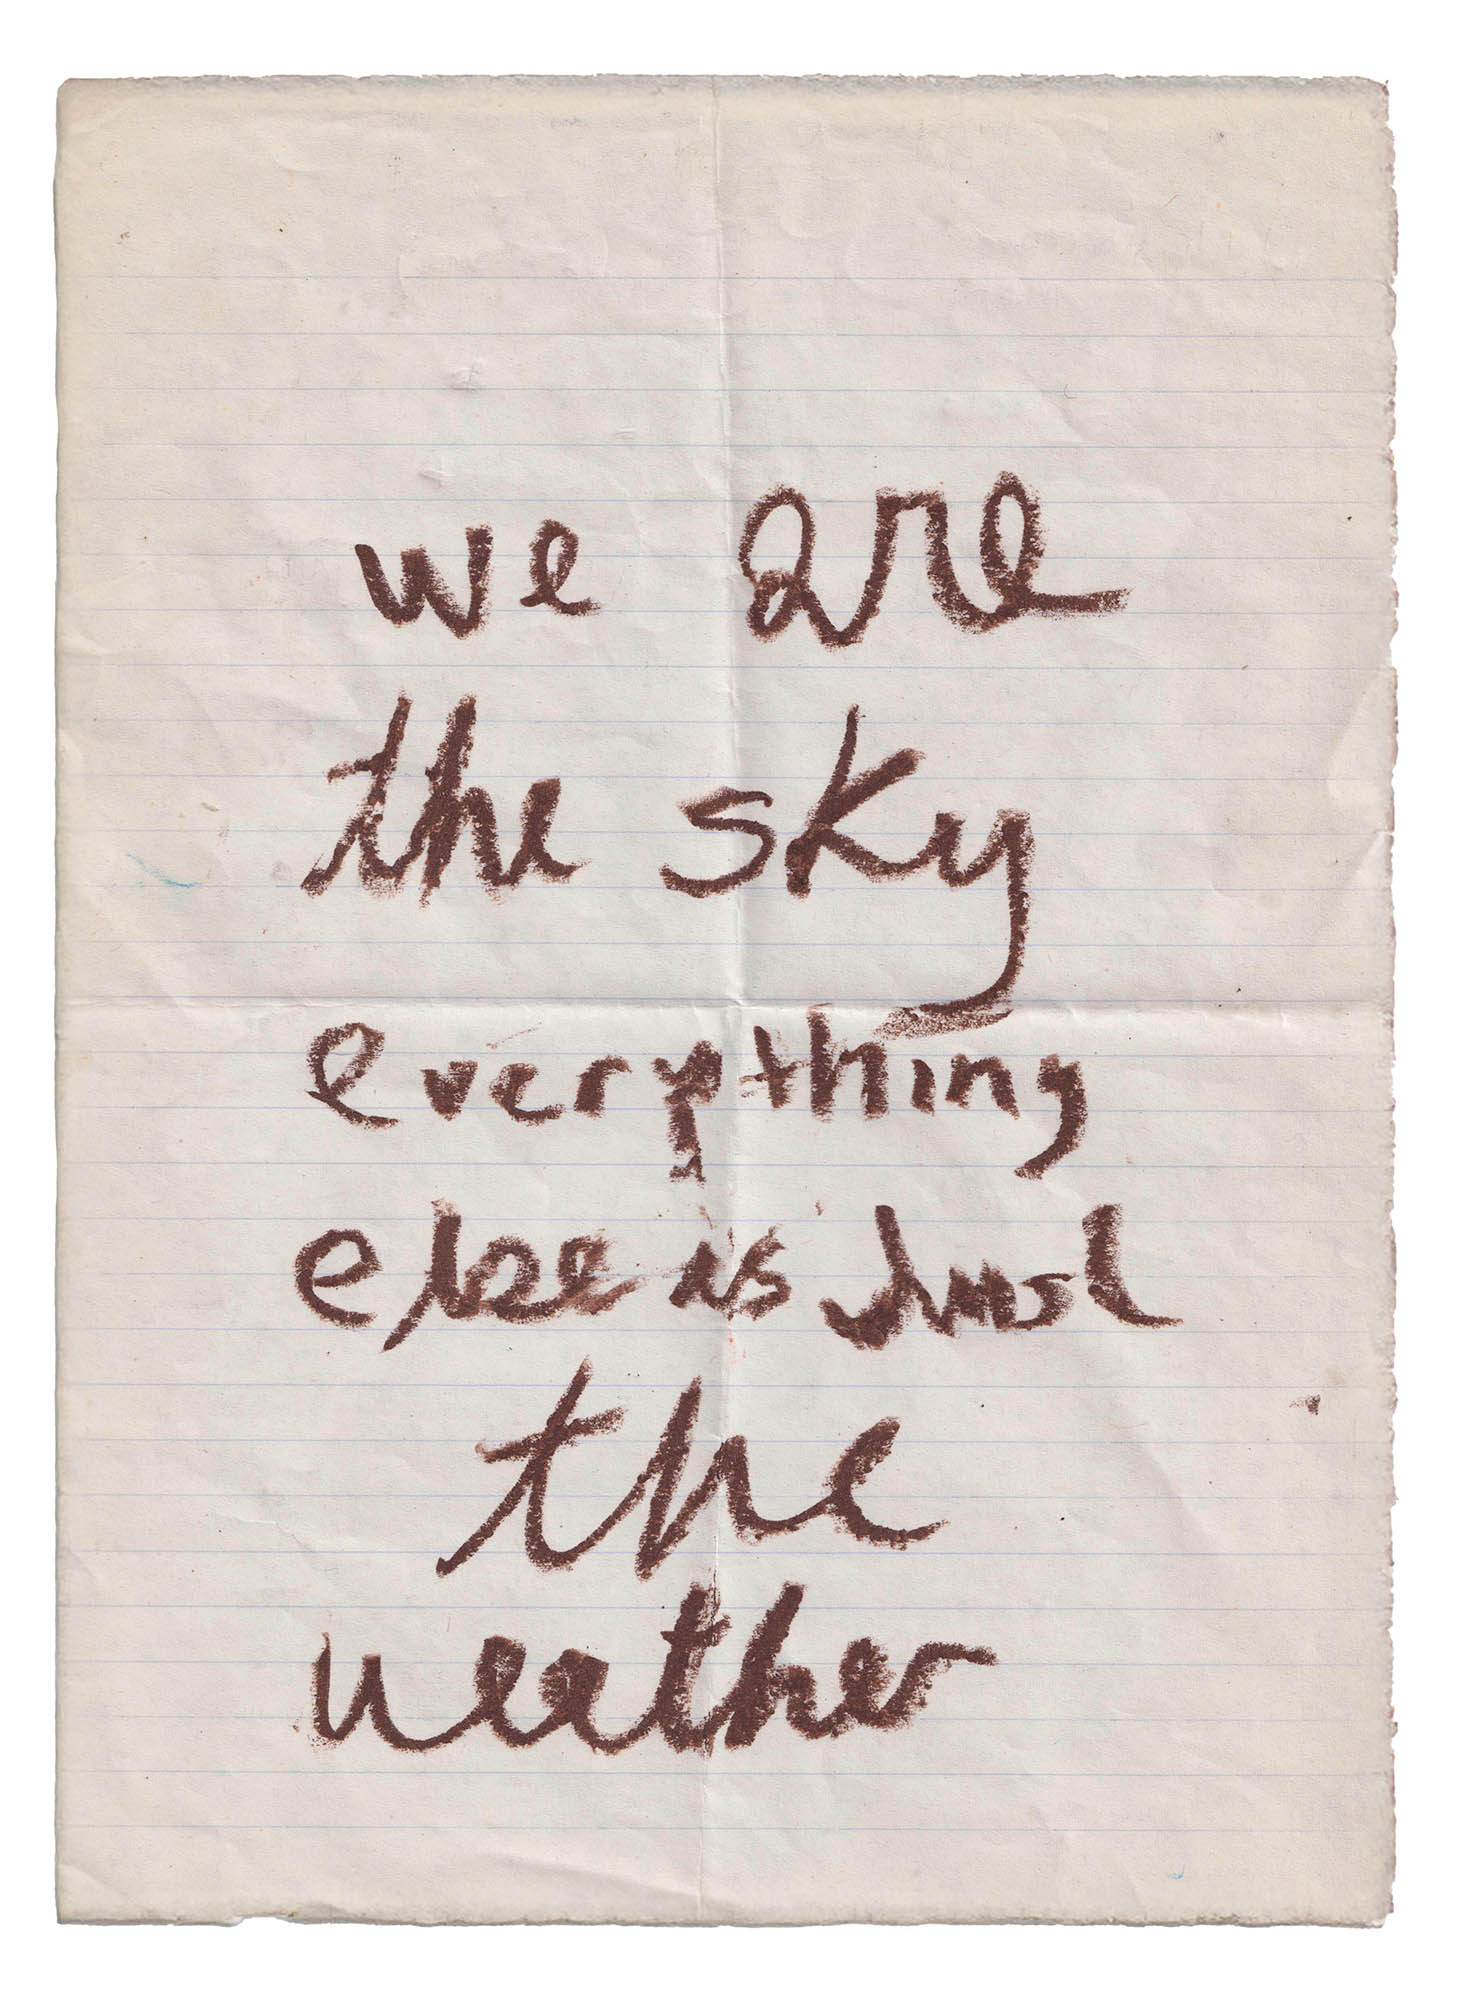 we are
the sky
everything
else is just
the
weather